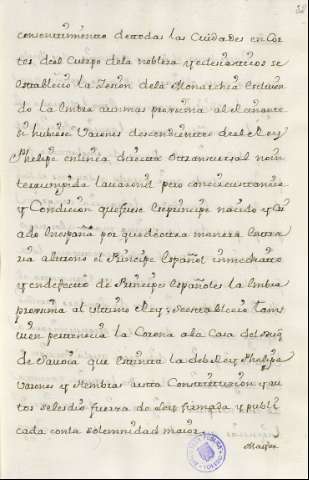 consentimiento detodas las Ciudades en Cor
tes del Cuerpo dela nobleza y eclesiasticos se
establecio la Tesion dela Monarchia Excluien
do la Embra aunmas proxima al Reinante
si hubiese Varones descendientes deel Rey
Phelipe en linea directa o transversal no in
terrumpida Varonil pero con circunstancia
y Condicion que fuese este principe nacido y Cri
ado En españa por que de otra manera Entra
ria al trono el Principe Español inmediato
y en defecto de Principes Españoles la Embra
proxima al ultimo Rey. Se establecio tam
vien pertenecia la Corona ala Casa del
de Savoia que Estinta la de el Rey Phelipe
Varones y Hembras esta Constitucion y au
tos seles dio fuerza de Ley firmada y publi
cada conla solemnidad maior.